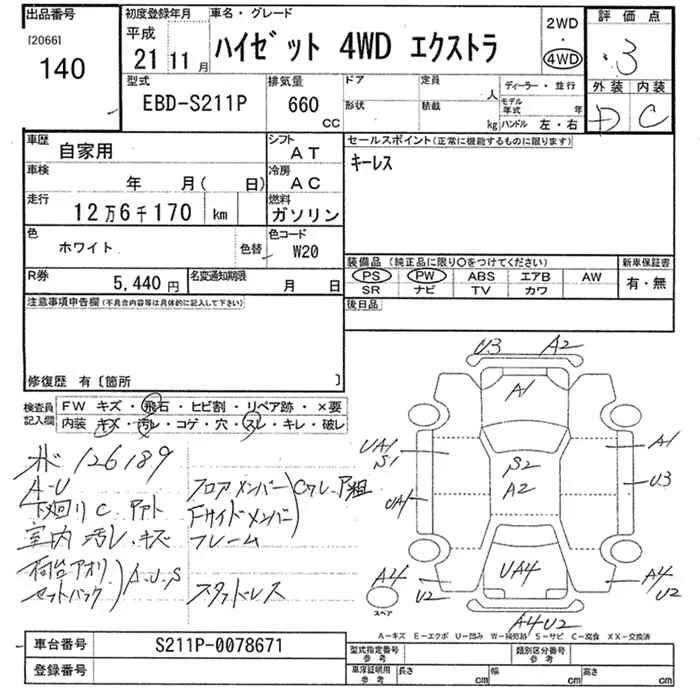 出品番号 初度登録年月 車名・グレード 2WD 評価点
[2066] 平成 ・
140 21 11月 ハイゼット 4WD エクストラ 4WD 3
型式 排気量 ドア 定員 人 ディーラー・並行 外装 内装
EBD-S211P 660 CC 形状 積載 kg モデル年式 年 D C
ハンドル 左・右
車歴 自家用 シフト AT セールスポイント(正常に機能するものに限ります)
車検 年 月( 日) 冷房 AC キーレス
走行 12万6千170 km 燃料 ガソリン
色 ホワイト 色替 色コード W20
装備品 (純正品に限り○をつけてください) 新車保証書
R券 5,440円 名変通知期限 月 日 PS PW ABS エアB AW 有・無
SR ナビ TV カワ
注意事項申告欄(不具合内容等は具体的に記入して下さい) 後日品
修復歴 有〔箇所 〕
検査員記入欄 FW キズ・飛石・ヒビ割・リペア跡・×要
内装 キズ・汚レ・コゲ・穴・スレ・キレ・破レ
U3 A2
A1
UA1 S1 S2 A1
A2 U3
UA1
UA4
A4 U2 A4 U2
A4U2
スペア
126189
A-U フロアメンバー
下廻りC. Fサイドメンバー
室内 汚レ.キズ フレーム
荷台アオリ A.U.S
セットバック スタッドレス
A-キズ E-エクボ U-凹み W-補修跡 S-サビ C-腐食 XX-交換済
車台番号 S211P-0078671 型式指定番号 参考 類別区分番号 参考
登録番号 車庫証明用 参考 長さ cm 幅 cm 高さ cm